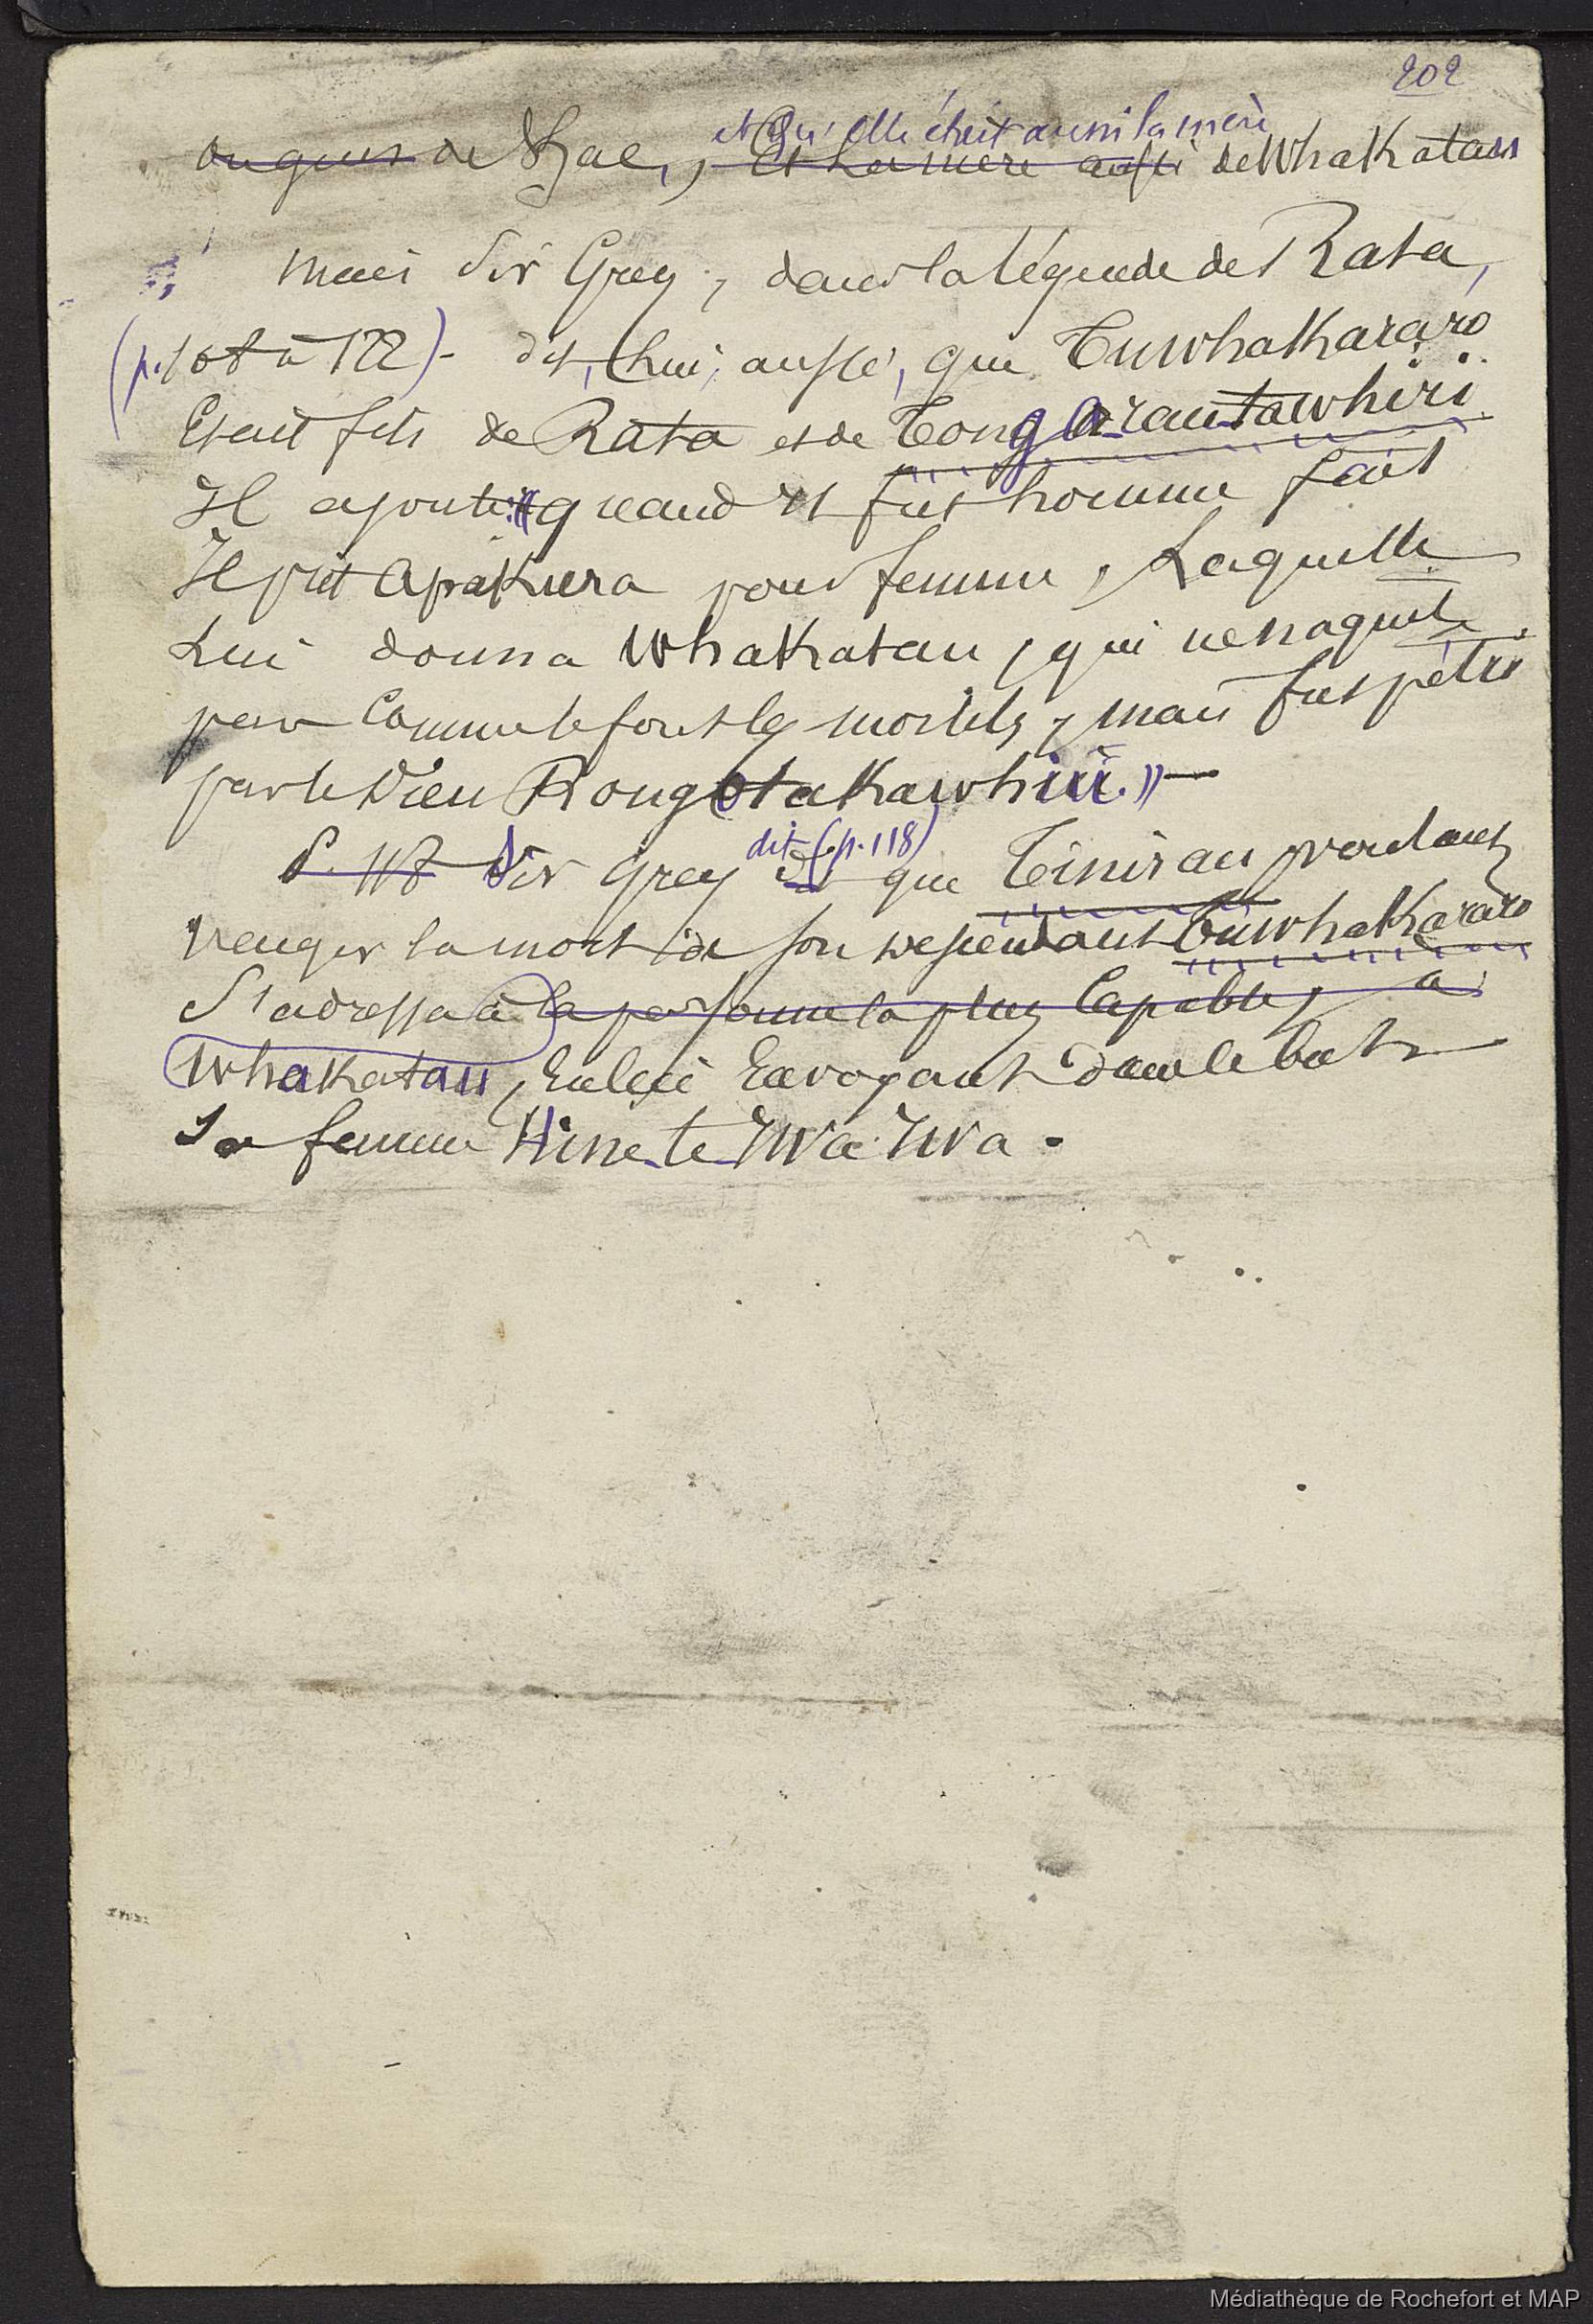 202
et qu'elle était aussi la mère
ou guers de Kae, et la mère aussi de Whakatau
mais Sir Grey, dans la légende de Rata,
(p. 108 à 122) - dit, lui, aussi, que Tuwhakararo
Etait fils de Rata et de Tongarautawhiri
Il ajoute: "quand il fut homme fait
Il prit Apakura pour femme, Laquelle
Lui donna Whakatau, qui ne naquit
pas comme le font les mortels, mais fut pétri
par le Dieu Rongotakawhiu." -
dit (p. 118)
P. 118 Sir Grey dit que Tinirau voulant
venger la mort de son descendant Tuwhakararo
S'adressa à la personne la plus capable, à
Whakatau, en lui Envoyant dans le but
Sa femme Hine-te-Iwa-Iwa.
Médiathèque de Rochefort et MAP